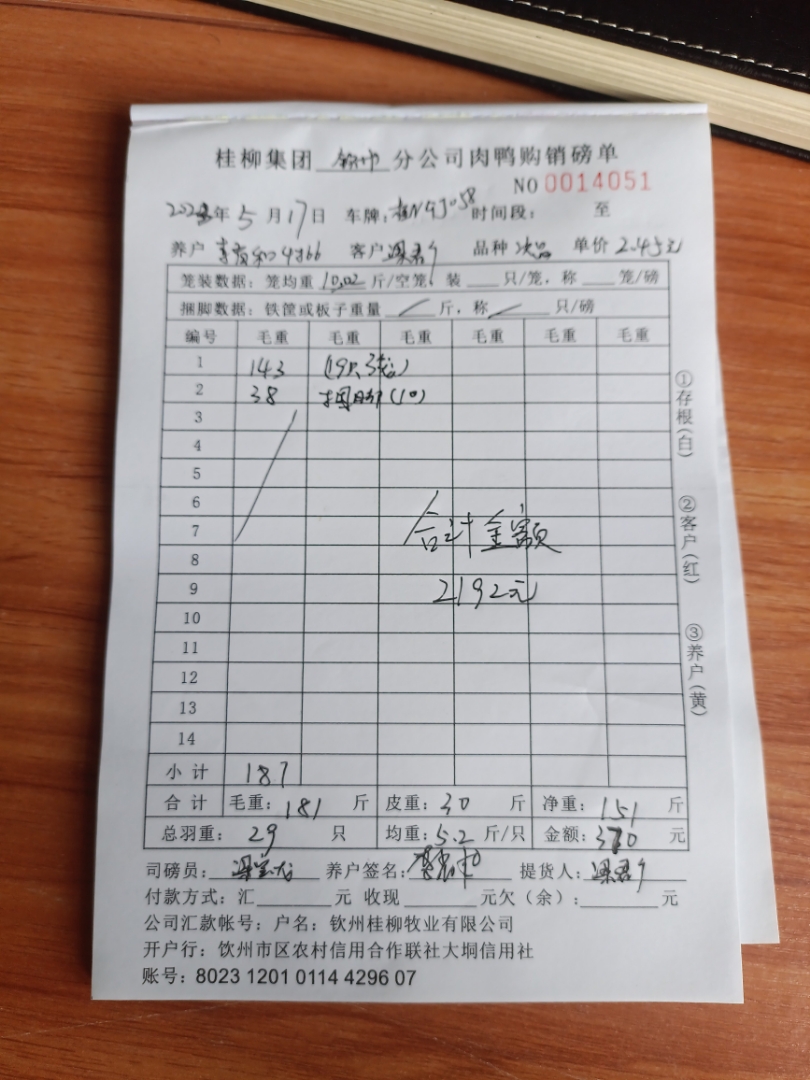 桂柳集团 钦州 分公司肉鸭购销磅单
NO 0014051
年 5 月 17 日 车牌: 时间段: 至
养户 客户 梁君 品种 次品 单价 2.45元
笼装数据: 笼均重 10.02 斤/空笼, 装 只/笼, 称 笼/磅
捆脚数据: 铁筐或板子重量 / 斤, 称 / 只/磅
编号 毛重 毛重 毛重 毛重 毛重 毛重
1 143 (19只3笼)
2 38 捆脚(10)
3
4
5
6
7
8
9
10
11
12
13
14
合计金额
2192元
小计 187
合计 毛重: 181 斤 皮重: 30 斤 净重: 151 斤
总羽重: 29 只 均重: 5.2 斤/只 金额: 370 元
司磅员: 养户签名: 提货人: 梁君
付款方式: 汇 元 收现 元欠(余): 元
公司汇款帐号: 户名: 钦州桂柳牧业有限公司
开户行: 饮州市区农村信用合作联社大垌信用社
账号: 8023 1201 0114 4296 07
①存根(白)
②客户(红)
③养户(黄)